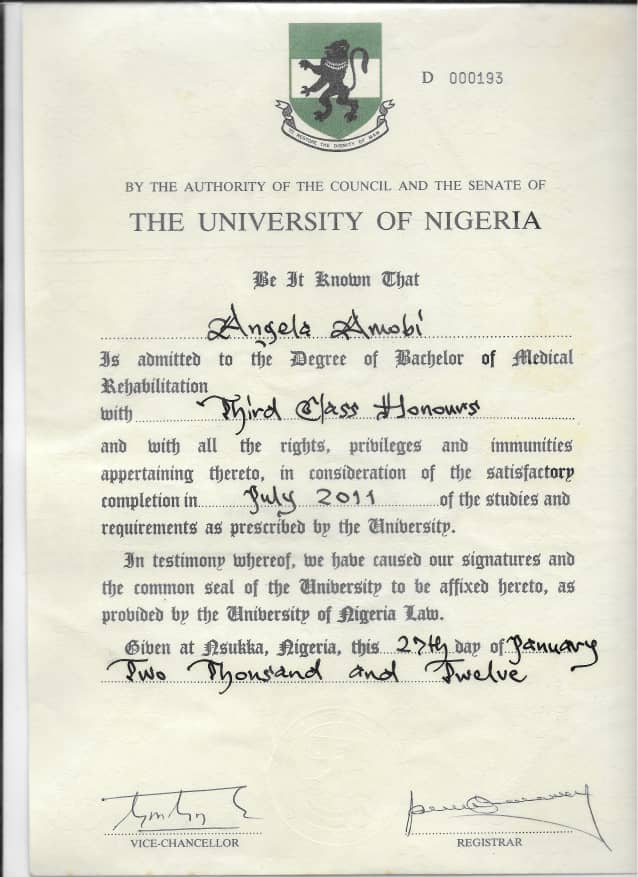 D 000193
TO RESTORE THE DIGNITY OF MAN
BY THE AUTHORITY OF THE COUNCIL AND THE SENATE OF
THE UNIVERSITY OF NIGERIA
Be It Known That
Angela Amobi
Is admitted to the Degree of Bachelor of Medical
Rehabilitation
with Third Class Honours
and with all the rights, privileges and immunities
appertaining thereto, in consideration of the satisfactory
completion in July 2011 of the studies and
requirements as prescribed by the University.
In testimony whereof, we have caused our signatures and
the common seal of the University to be affixed hereto, as
provided by the University of Nigeria Law.
Given at Nsukka, Nigeria, this 27th day of January
Two Thousand and Twelve
VICE-CHANCELLOR
REGISTRAR